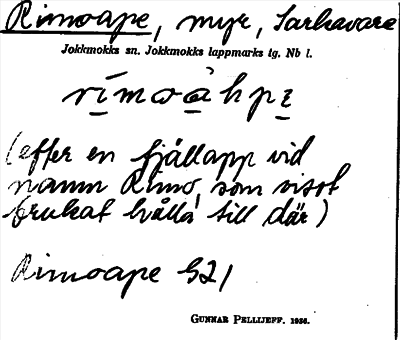 Rimoape, myr, Sarkavare
Jokkmokks sn. Jokkmokks lappmarks tg. Nb l.
rīmoåhpe
(efter en fjällapp vid
namn Rimo, som visst
brukat hålla till där)
Rimoape S21
GUNNAR PELLIJEFF. 1936.